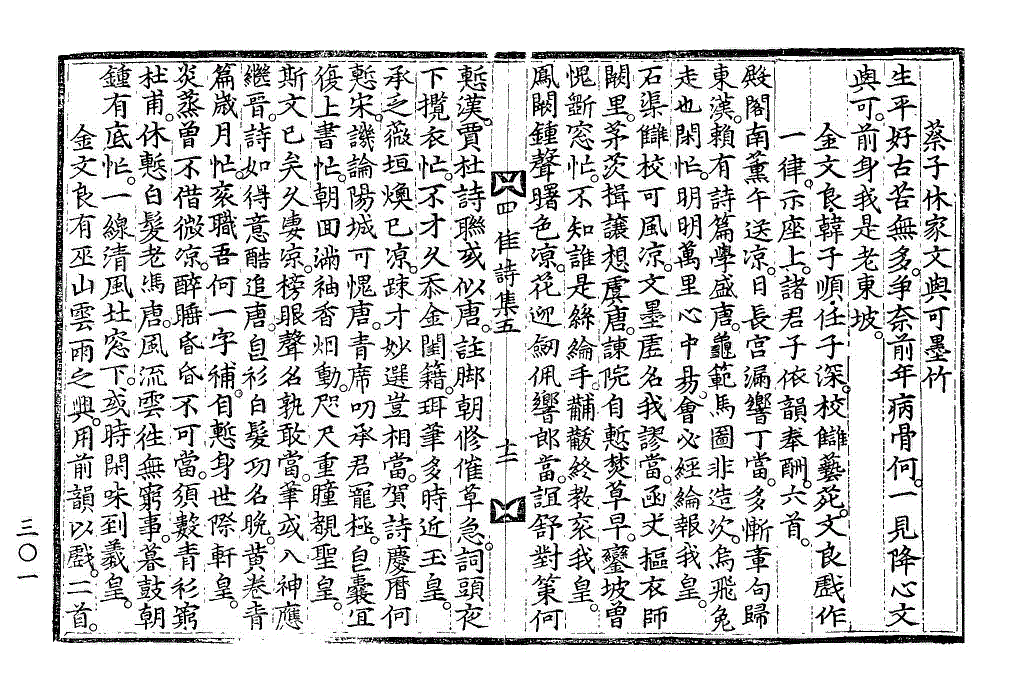 蔡子休家文與可墨竹
生平好古苦無多。争奈前年病骨何。一見降心文
與可。前身我是老東坡。
金文良韓子順·任子深。校讎藝苑。文良戲作
一律。示座上。諸君子依韻奉酬。六首。
殿閣南薰午送凉。日長宮漏響丁當。多慚牽句歸
東漢。賴有詩篇學盛唐。龜範馬圖非造次。烏飛兔
走也閑忙。明明萬里心中易。會必經綸報我皇。
石渠讎校可風凉。文墨虛名我謬當。函丈摳衣師
闕里。茅茨揖讓想虞唐。諫院自慙焚草早。鑾坡曾
愧斲窓忙。不知誰是絲綸手。黼黻終敎衮我皇。
鳳闕鍾聲曙色凉。花迎劒佩響郞當。誼舒對策何
慙漢。賈杜詩聯或似唐。註脚朝修催草急。詞頭夜
下攬衣忙。不才久忝金閨籍。珥筆多時近玉皇。
承之薇垣燠已凉。踈才妙選豈相當。賀詩慶曆何
慙宋。譏論陽城可愧唐。青席叨承君寵極。皀囊宜
復上書忙。朝面滿袖香烟動。咫尺重瞳覲聖皇。
斯文已矣久凄凉。榜眼聲名孰敢當。筆或入神應
繼晉。詩如得意酷追唐。皀衫白髮功名晩。黃卷青
篇歲月忙。衮職吾何一字補。自慙身世際軒皇。
炎蒸曾不借微凉。醉睡昏昏不可當。須數青衫窮
杜甫。休慙白髮老馮唐。風流雲徃無窮事。暮鼓朝
鍾有底忙。一線清風北窓下。或時閑味到羲皇。
金文良有巫山雲雨之興。用前韻以戲。二首。
四佳詩集五
十二
三〇一